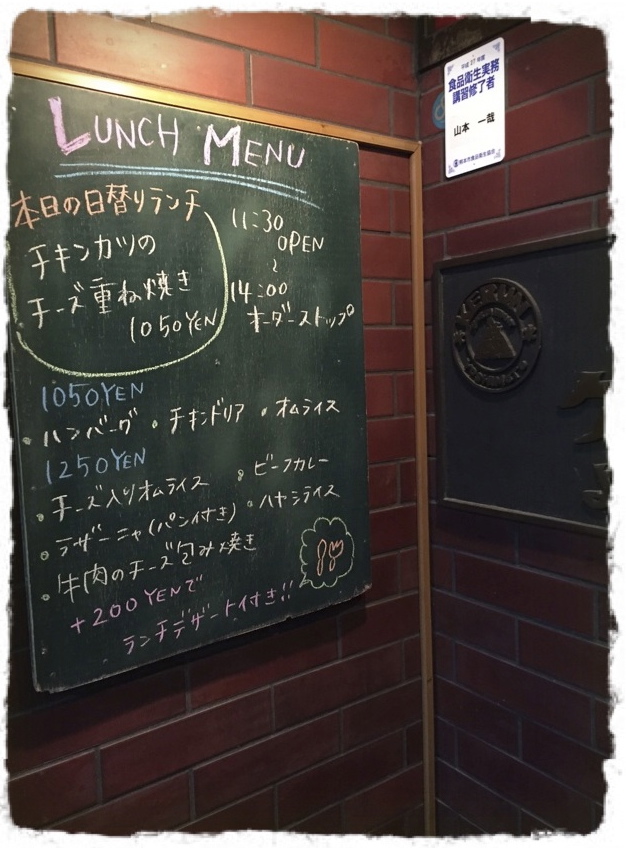 LUNCH MENU
本日の日替りランチ
チキンカツの
チーズ重ね焼き
1050YEN
11:30
OPEN
~
14:00
オーダーストップ
1050YEN
・ハンバーグ ・チキンドリア ・オムライス
1250YEN
・チーズ入りオムライス ・ビーフカレー
・ラザーニャ(パン付き) ・ハヤシライス
・牛肉のチーズ包み焼き
+200YENで
ランチデザート付き!!
平成27年度
食品衛生実務
講習修了者
山本 一哉
熊本市食品衛生協会